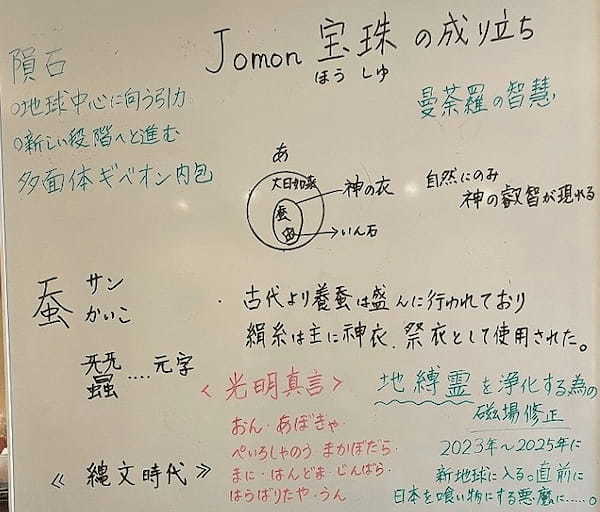 Jomon 宝珠 の成り立ち
ほう しゅ
隕石
○地球中心に向う引力
○新しい段階へと進む
多面体ギベオン内包
曼荼羅の智慧
あ
大日如来
蚕
神の衣
いん石
自然にのみ
神の叡智が現れる
蚕 サン
かいこ
・古代より養蚕は盛んに行われており
絹糸は主に神衣、祭衣として使用された。
蠶 ‥‥元字
《縄文時代》
〈光明真言〉
おん・あぼきゃ・
べいろしゃのう まかぼだら・
まに・はんどま じんばら・
はらばりたや・うん
地縛霊を浄化する為の
磁場修正
2023年〜2025年に
新地球に入る。直前に
日本を喰い物にする悪魔に……。